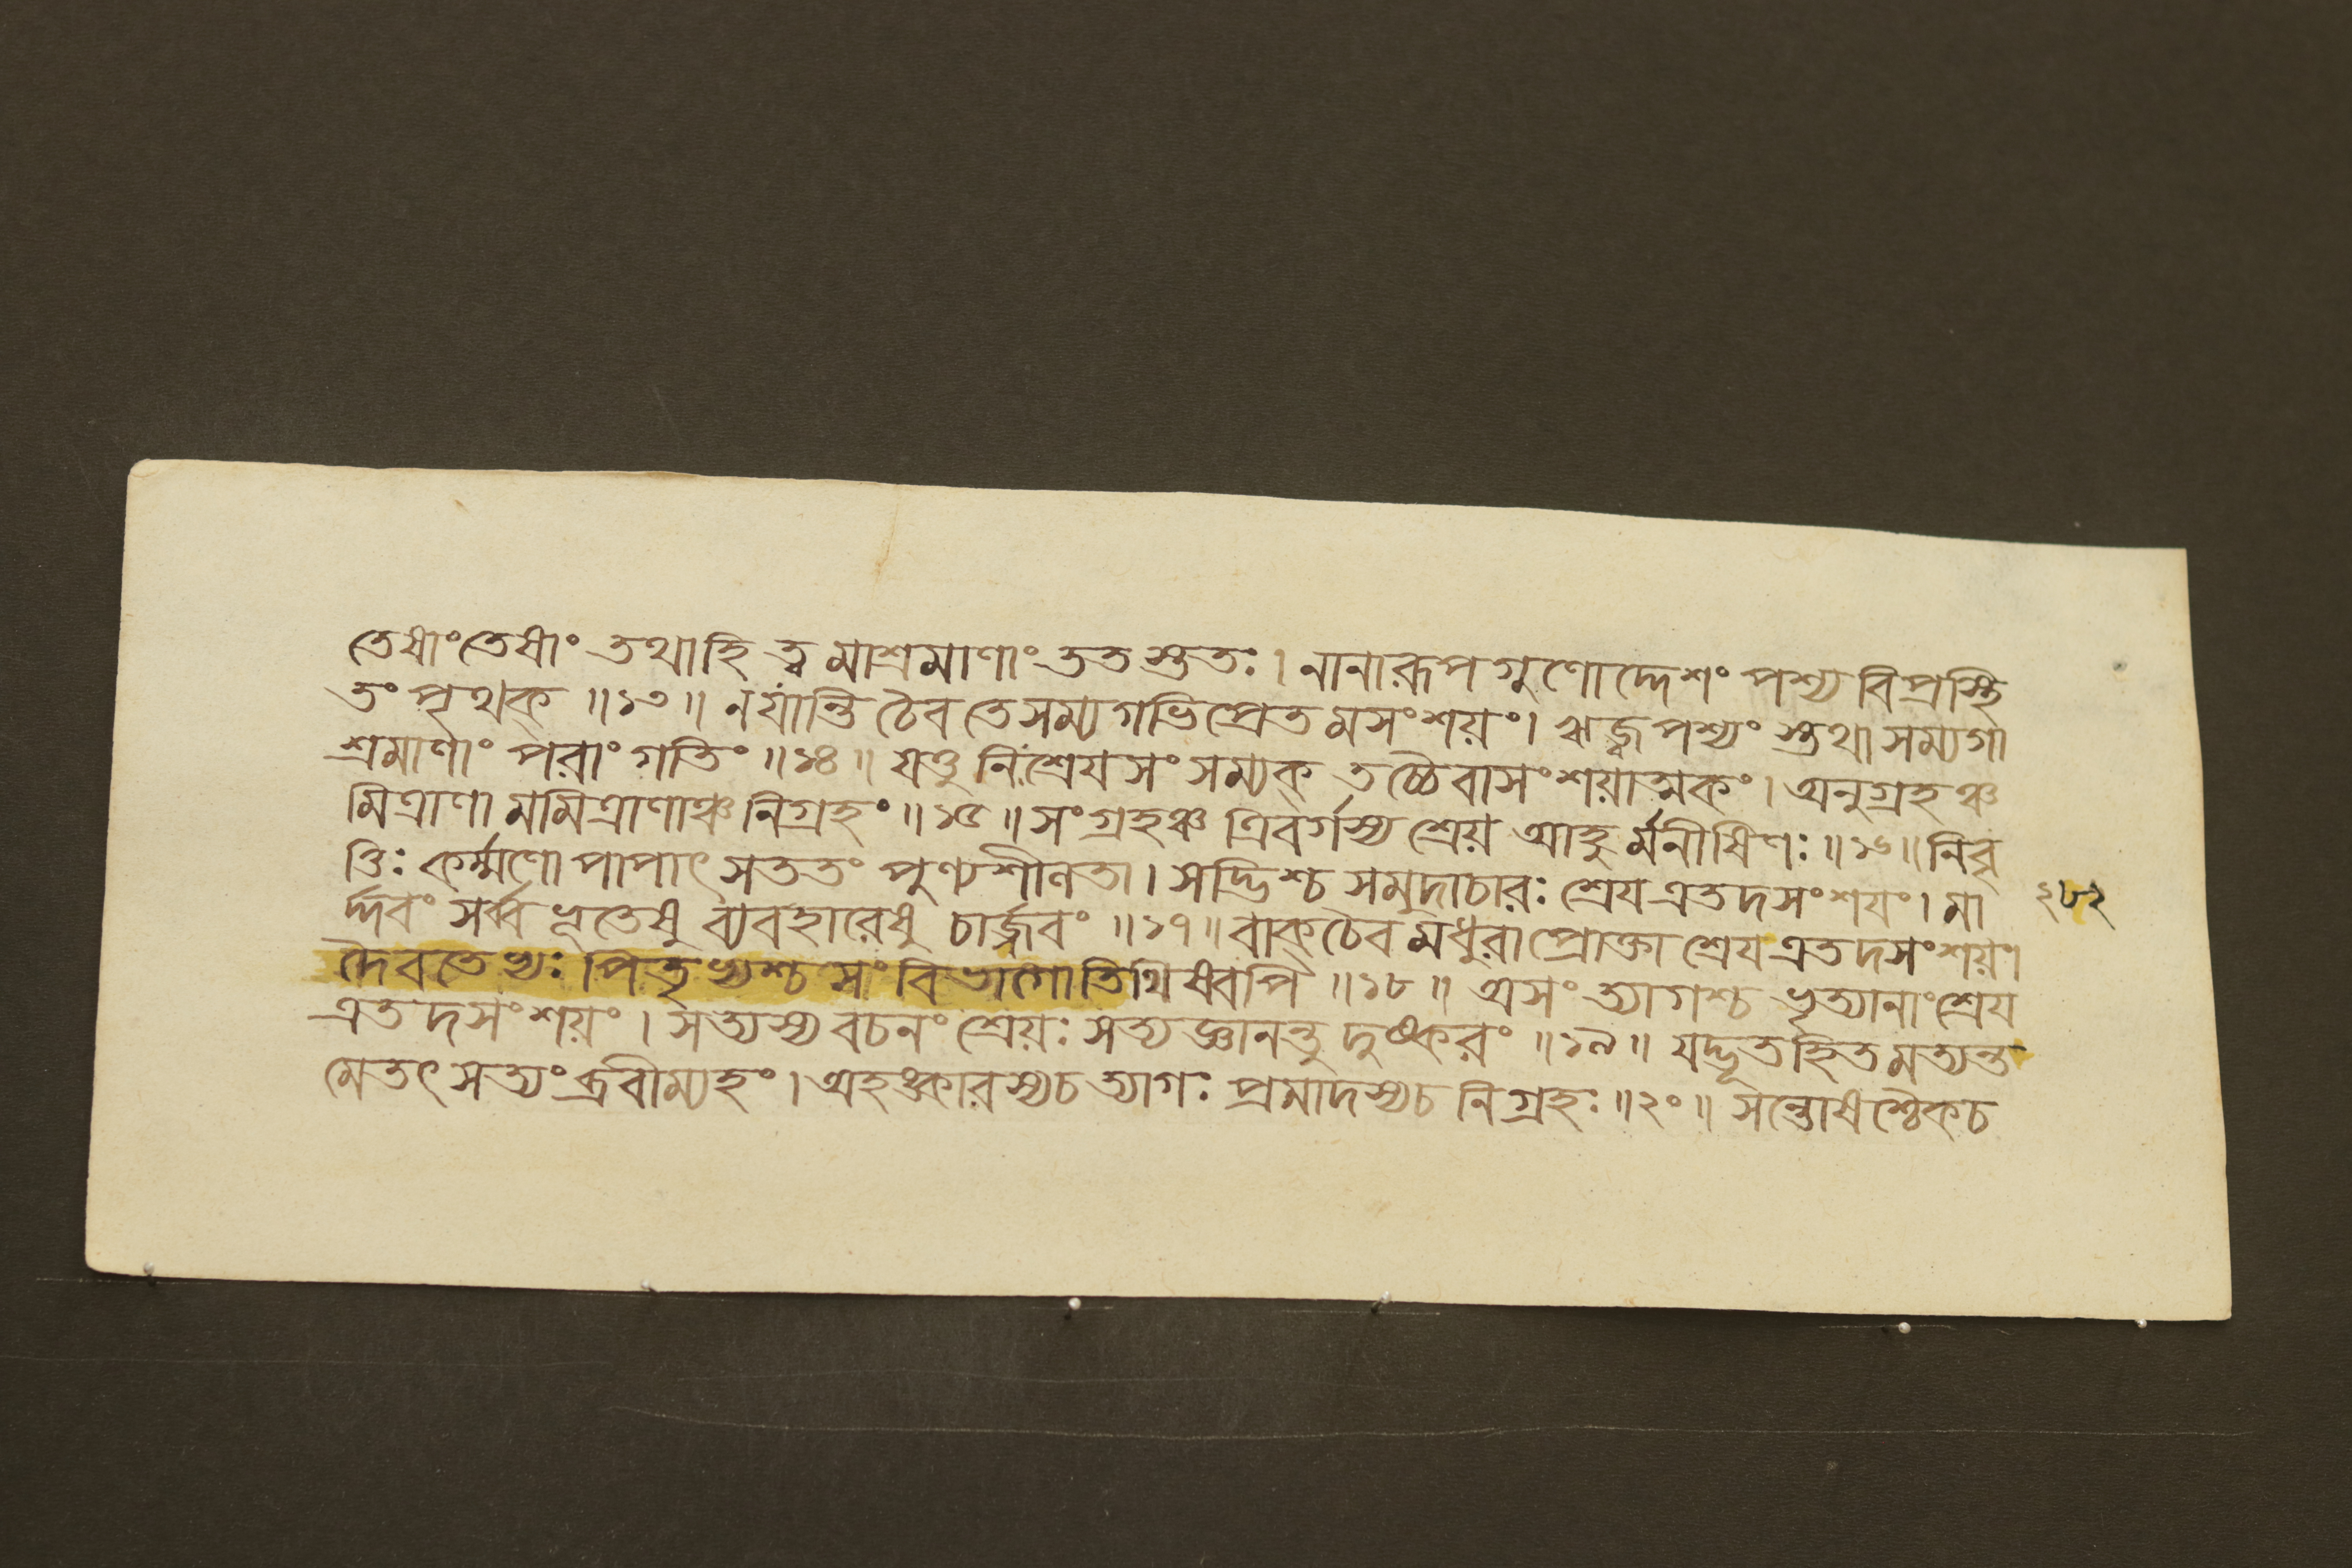 তেষাংতেষাং তথাহি ত্বমাশ্রমাণাং ততস্ততঃ। নানারূপগুণোদ্দেশং পশ্য বিপ্রস্থি
তং পৃথক্ ॥১৩॥ নযান্তি চৈব তে সম্যগভিপ্রেতমসংশয়ং। ঋজুপশ্যং স্তথা সম্যগা
শ্রমাণাং পরাং গতিং ॥১৪॥ যত্তু নিঃশ্রেযসং সম্যক্ তচ্চৈবাসংশয়াত্মকং। অনুগ্রহঞ্চ
মিত্রাণামমিত্রাণাঞ্চ নিগ্রহং ॥১৫॥ সংগ্রহঞ্চ ত্রিবর্গস্য শ্রেয় আহুর্মনীষিণঃ ॥১৬॥ নিবৃ
ত্তিঃ কর্ম্মণো পাপাৎ সততং পুণ্যশীলতা। সদ্ভিশ্চ সমুদাচারঃ শ্রেয এতদসংশযং। মা
র্দ্দবং সর্ব্বভূতেষু ব্যবহারেষু চার্জ্জবং ॥১৭॥ বাক্ চৈব মধুরা প্রোক্তা শ্রেয এতদসংশয়ং।
দৈবতেভ্যঃ পিতৃভ্যশ্চ সংবিভাগোতিথিষ্বপি ॥১৮॥ অসংত্যাগশ্চ ভৃত্যানাং শ্রেয
এতদসংশয়ং। সত্যস্য বচনং শ্রেয়ঃ সত্যজ্ঞানন্তু দুষ্করং ॥১৯॥ যদ্ভূতহিতমত্যন্ত
মেতৎ সত্যং ব্রবীম্যহং। অহঙ্কারস্যচ ত্যাগঃ প্রমাদস্যচ নিগ্রহঃ ॥২০॥ সন্তোষশ্চৈকচ
২৮২